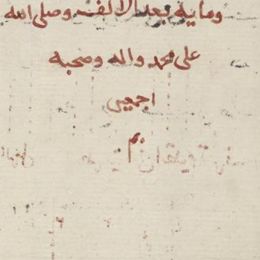 وماية بعد الالف وصلى الله
على محمد واله وصحبه
اجمعين
تم